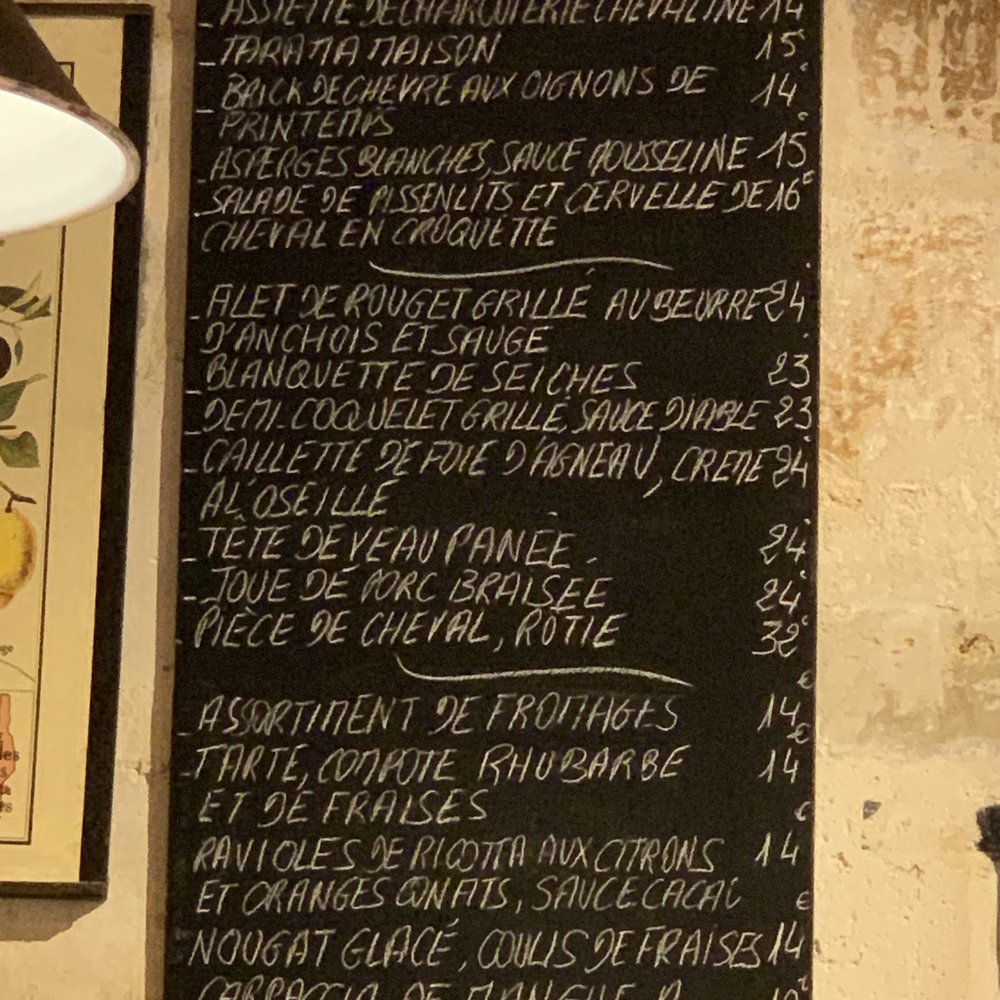 ASSIETTE DE CHARCUTERIE CHEVALINE 14
_ TARAMA MAISON 15€
_ BRICK DE CHEVRE AUX OIGNONS DE 14€
PRINTEMPS
_ ASPERGES BLANCHES, SAUCE MOUSSELINE 15€
_ SALADE DE PISSENLITS ET CERVELLE DE 16€
CHEVAL EN CROQUETTE
_ FILET DE ROUGET GRILLÉ AU BEURRE 24
D'ANCHOIS ET SAUGE
_ BLANQUETTE DE SEICHES 23
_ DEMI-COQUELET GRILLÉ, SAUCE DIABLE 23
_ CAILLETTE DE FOIE D'AGNEAU, CREME 24
A L'OSEILLE
_ TÊTE DE VEAU PANÉE 24
_ JOUE DE PORC BRAISÉE 24€
_ PIÈCE DE CHEVAL, RÔTIE 32€
_ ASSORTIMENT DE FROMAGES 14€
_ TARTE, COMPOTE RHUBARBE 14€
ET DE FRAISES
RAVIOLES DE RICOTTA AUX CITRONS 14€
ET ORANGES CONFITS, SAUCE CACAO
NOUGAT GLACÉ, COULIS DE FRAISES 14€
CARPACCIO DE MANGUE